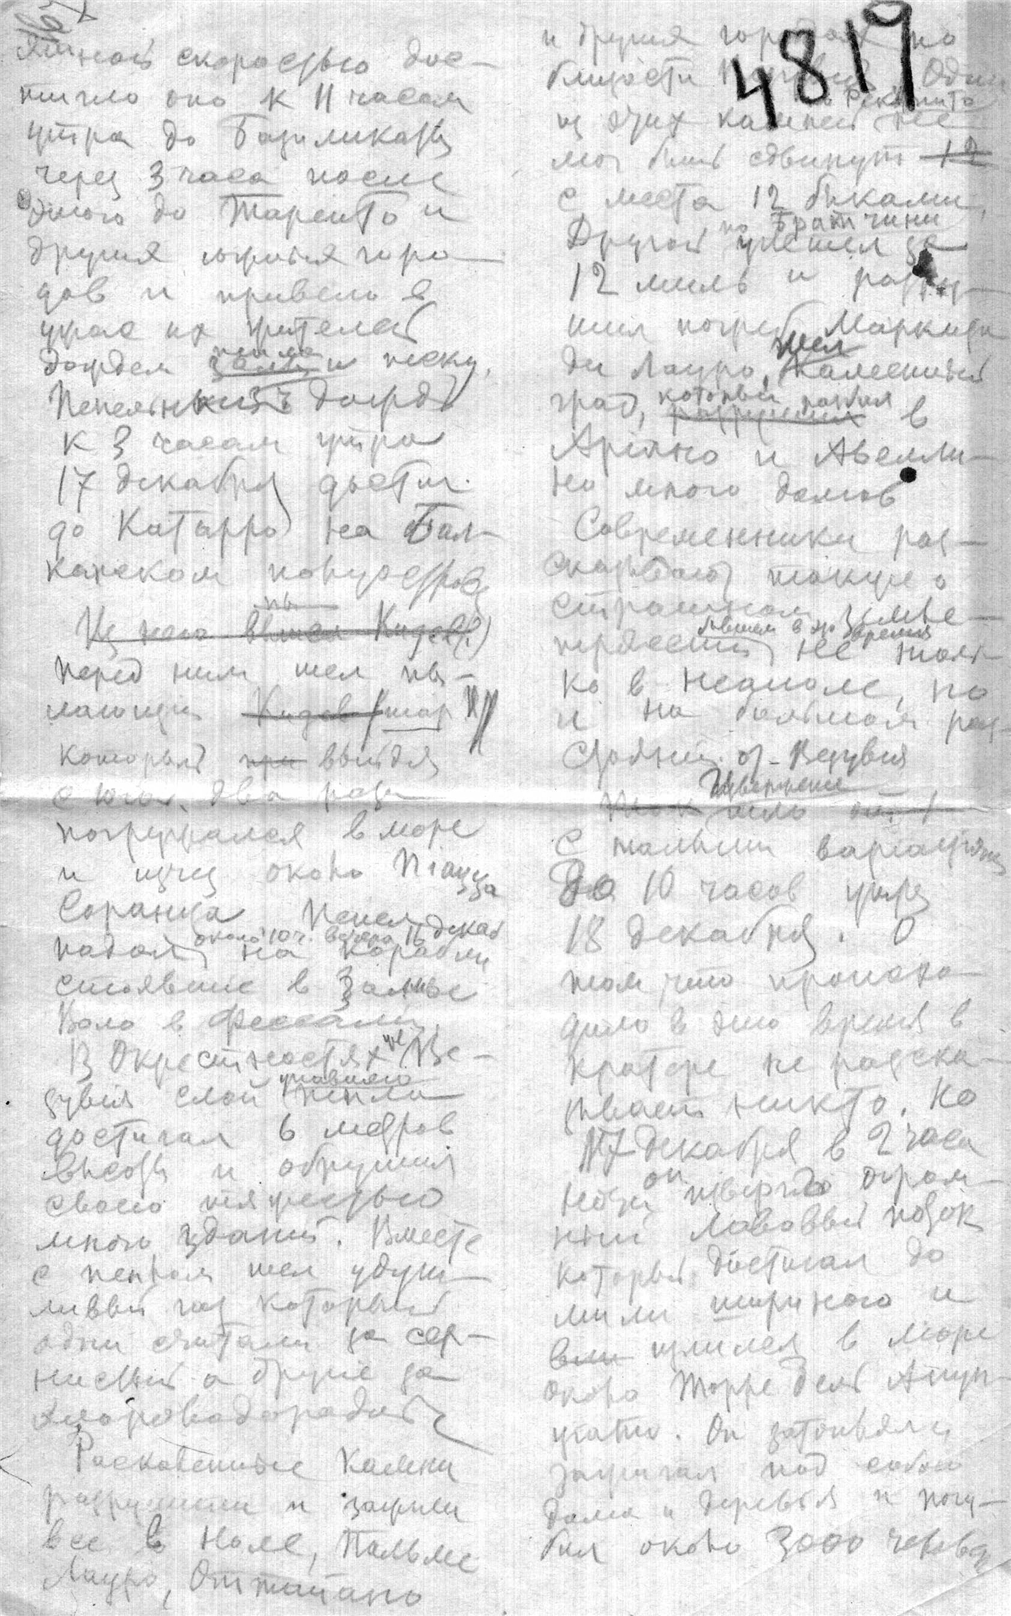 4819
ной скоростью дос-
тигло оно к 11 часам
утра до Базиликаты
через 3 часа после
этого до Таренто и
других южных горо-
дов и привело в
ужас их жителей
дождем пепла и песку.
Пепельный дождь
к 3 часам утра
17 декабря достиг
до Катарро на Бал-
канском полуострове
Из него вышел
перед ним шел пы-
лающий шар
который при выйдя
с юга, два раза
погружался в море
и исчез около Пиацца
Соранца Пепел
около 10 ч. вечера 16 декаб
падал на корабли
стоявшие в Заливе
Воло в Фессалии.
В Окрестностях же Ве-
зувия слой пепла
достигал 6 метров
высоты и обрушил
своею тяжестью
много зданий. Вместе
с пеплом шел удуш-
ливый газ который
одни считали за сер-
нистый а другие за
хлороводородный
Раскаленные камни
разрушили и зажгли
все в Ноле, Пальме
Лауро, Оттайано
и других городах по
близости Одни
из этих камней не
мог быть сдвинут 12
с места 12 быками,
по Братчини
Другой улетел за
12 миль и разру-
шил погреб Маркиза
ди Лауро. Шел Каменный
град, который разбил в
Ариано и Авелли-
но много домов
Современники рас-
сказывают также о
страшном земле-
трясении бывшем в это время не толь-
ко в Неаполе, но
и на большом рас-
стоянии от Везувия
Извержение шло
с малыми вариациями
до 10 часов утра
18 декабря. О
том, что происхо-
дило в это время в
кратере не расска-
зывает никто. Но
17 декабря в 2 часа
ночи он извергло огром-
ный лавовый поток
который достигал до
мили шириною и
вли излился в море
около Торре дель Анун-
циато. Он затоплял и
зажигал под собою
дома и деревья и погу-
бил около 3000 человек